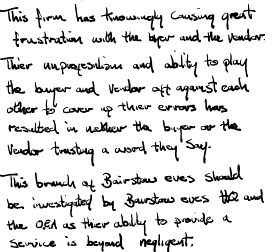 This firm has knowingly causing great
frustration with the byer and the vendor.
Thier unprofesnlism and ability to play
the buyer and vendor off against each
other to cover up thier errors has
resulted in neither the buyer or the
vendor trusting a word they say.
This branch of Bairstow eves should
be investigated by Bairstow eves HQ and
the OEA as thier ability to provide a
service is beyond negligent.